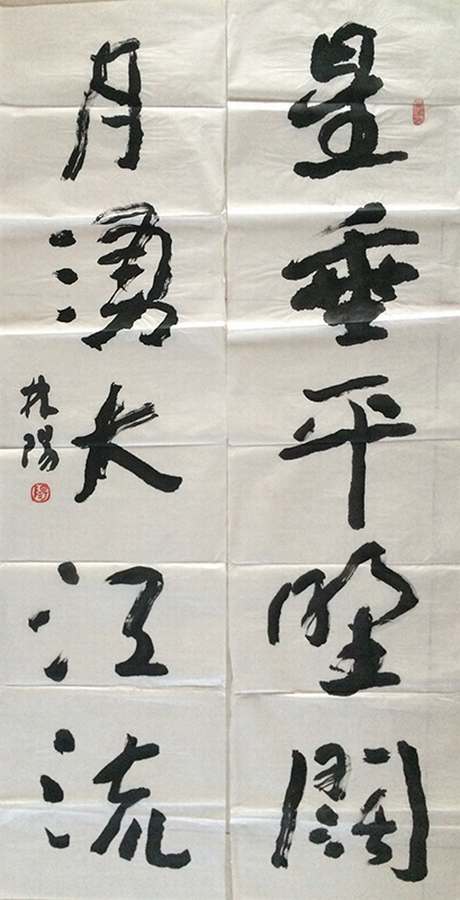 星垂平野闊
月湧大江流
陽